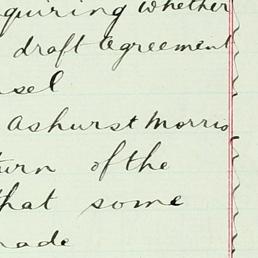 quiring whether
draft agreement
nsel
Ashurst Morris
turn of the
that some
made